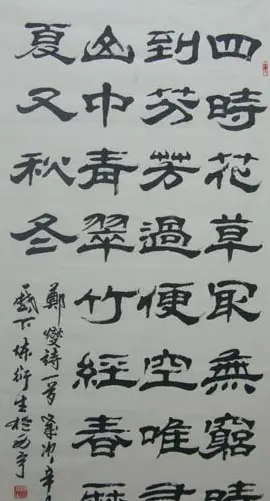 四時花草冣無窮時
到芬芳過便空唯有
山中青翠竹經春歷
夏又秋冬
鄭燮詩一首歲次辛